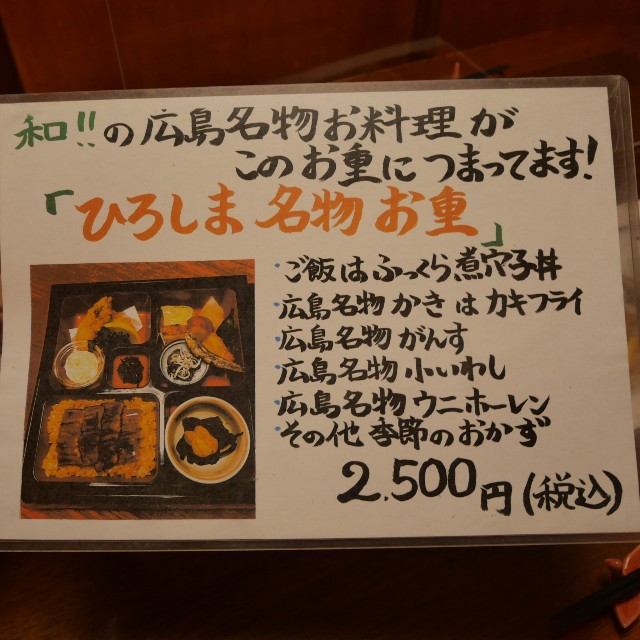 和!!の広島名物お料理が
このお重につまってます!
「ひろしま名物お重」
・ご飯はふっくら煮穴子丼
・広島名物かきはカキフライ
・広島名物がんす
・広島名物小いわし
・広島名物ウニホーレン
・その他季節のおかず
2.500円(税込)